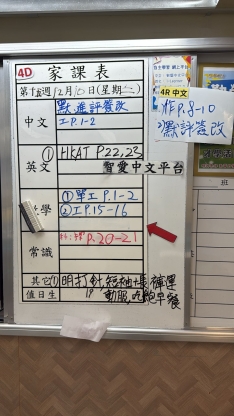 4D 家課表
第十五週12月10日(星期二)
中文
默進評簽改
工P.1-2
4R 中文
作P.8-10
默評簽改
英文
① HKAT P.22,23
智愛中文平台
學
①單工P.1-2
②工P.15-16
常識
P.20-21
班
其它(1)
明打針,短袖+長褲運
動服,吃飽早餐
值日生
19